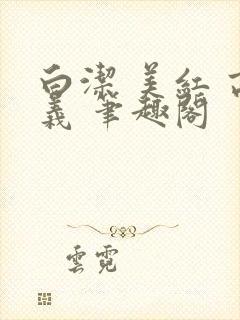 白潔 美紅 高
義 筆趣閣
雲霓